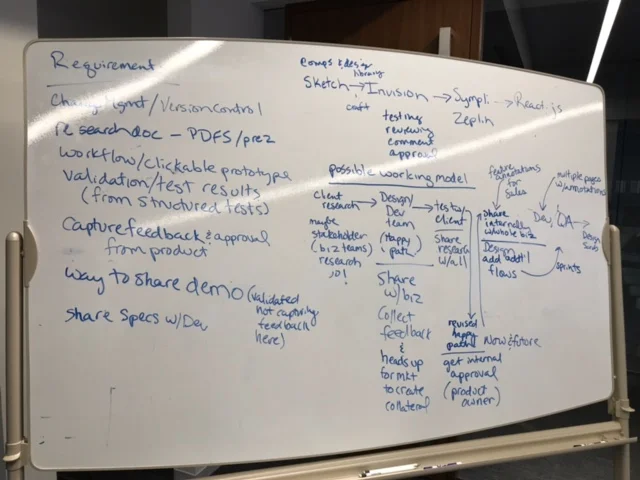 Requirement
Change Mgmt/Version Control
research doc - PDFS/prez
workflow/clickable prototype
validation/test results
(from structured tests)
Capture feedback & approval
from product
way to share demo (validated
not capturing
feedback
here)
Share Specs w/Dev
comps & design
library
Sketch → Invision → Sympli → React.js
craft
Zeplin
testing
reviewing
comment
approval
possible working model
client
research →
maybe
stakeholder
(biz teams)
research
Design/
Dev
team
(Happy
path)
Share
w/biz
Collect
feedback
&
heads up
for mkt
to create
collateral
→ test w/
client
Share
research
w/all
revised
happy
paths
get internal
approval
(product
owner)
Now & future
feature
annotations
for
sales
Share
internally
w/whole biz
Design
add addt'l
flows
sprints
Dev, QA →
multiple pages
w/annotations
Design